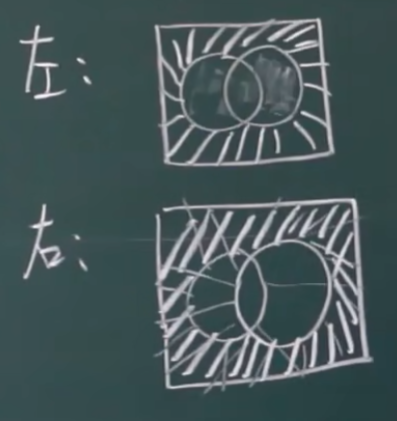 左：
右：